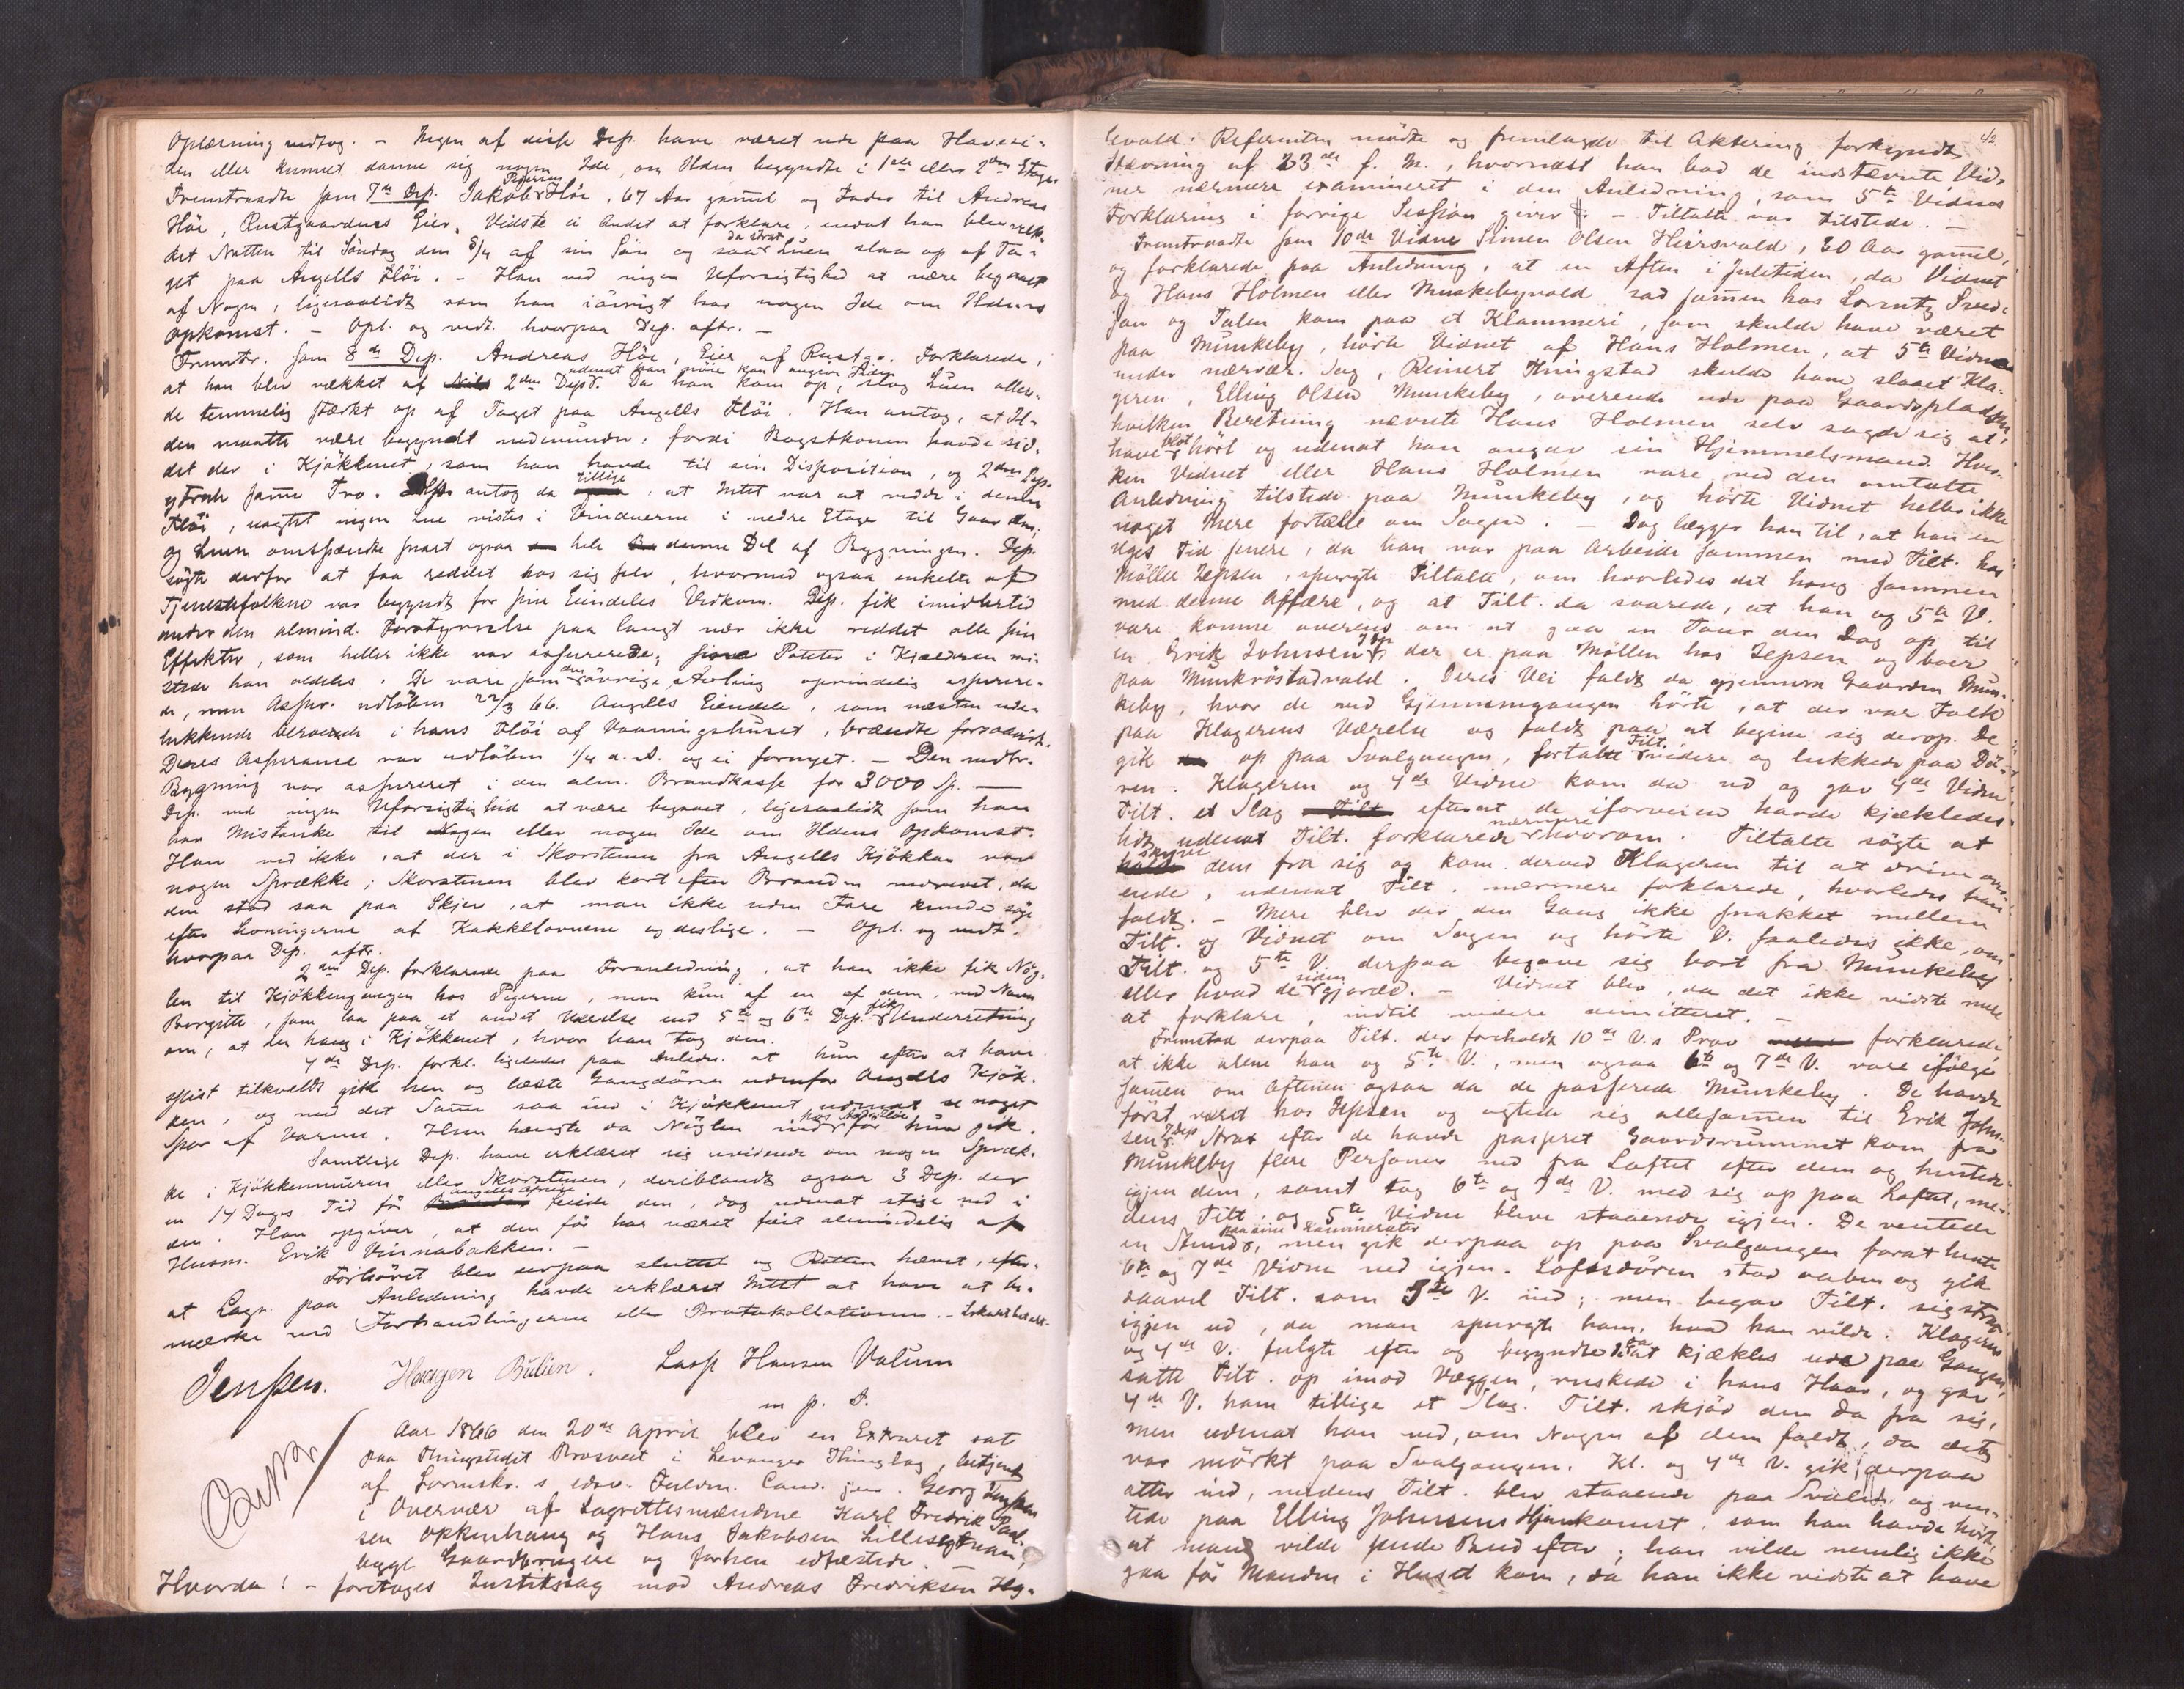 Oplæsning vedtog. - Ingen af disse Dep. have været ude paa Havesi-
den eller kunnet danne sig nogen Ide, om Ilden begyndte i 1ste eller 2den Etage.
Fremtraadte som 7de Dep. Jakob Pedersen Höe, 67 Aar gamel og Fader til Andreas
Höe, Rustgaardens Eier. Vidste ei Andet at forklare, end at han blev vek-
ket Natten til Söndag den 8/4 af sin Sön og saae da strax Luen slaa op af Ta-
get paa Angells Flöi. - Han ved ingen Uforsigtighed at være begaaet
af Nogen, ligesaalidt som han iövrigt har nogen Ide om Ildens
Opkomst. - Opl. og vedt. hvorpaa Dep. aftr. -
Fremtr. som 8de Dep. Andreas Höe, Eier af Rustg. Forklarede,
at han blev vækket af 2den Dep. udenat han nöie kan angive Tiden. Da han kom op, slog Luen aller-
de temmelig stærkt op af Taget paa Angells Flöi. Han antog, at Il-
den maatte være begyndt nedenunder, fordi Bagstkonen havde sid-
det der i Kjökkenet, som han havde til sin Disposition, og 2den Dep.
yttrede samme Tro. Dep. antog da tillige, at Intet var at redde i denne
Flöi, uagtet ingen Lue vistes i Vinduerne i nedre Etage til Gaarden;
og Luen omspændte snart ogsaa hele denne Del af Bygningen. Dep.
sögte derfor at faa reddet hos sig selv, hvormed ogsaa enkelte af
Tjenestefolkene var begyndt for sine Eiendeles Vedkom. Dep. fik imidlertid
under den almind. Forstyrrelse paa langt nær ikke reddet alle sine
Effekter, som heller ikke var assurerede; sine Poteter i Kjælderen mi-
stede han aldeles. De vare som den övrige Avling oprindelig assurere-
de, men Assur. udlöben 22/3 66. Angells Eiendele, som næsten ude-
lukkende beroede i hans Flöi af Vaaningshuset, brændte forsaavidt.
Deres Assurance var udlöben 1/4 d. A. og ei fornyet. - Den nedbr.
Bygning var assureret i den alm. Brandkasse for 3000 Sp. -
Dep. ved ingen Uforsigtighed at være begaaet, ligesaalidt som han
har Mistanke til Nogen eller nogen Ide om Ildens Opkomst.
Han ved ikke, at der i Skorstenen fra Angells Kjökken var
nogen Sprække; Skorstenen blev kort efter Branden nedrevet, da
den stod saa paa Skjev, at man ikke uden Fare kunde söge
efter Levningerne af Kakkelovnene og deslige. - Opl. og vedt.
hvorpaa Dep. aftr.
2den Dep. forklarede paa Foranledning, at han ikke fik Nög-
len til Kjökkengangen hos Pigerne, men kun af en af dem, ved Navn
Borgitte, som laa paa et andet Værelse end 5te og 6te Dep. fik Underretning
om, at den hang i Kjökkenet, hvor han tog den.
4de Dep. forkl. ligeledes paa Anledn. at hun efter at have
spist tilkvelds gik hen og læste Gangdören udenfor Angells Kjök-
ken, og med det Samme saa ind i Kjökkenet udenat se noget
Spor af Varme. Hun hængte da Nöglen ind hos för hun gik.
Samtlige Dep. have erklæret sig uvidende om nogen Spræk-
ke i Kjökkenmuren eller Skorstenen, deriblandt ogsaa 3 Dep. der
en 14 Dages Tid för feiede den, dog udenat stige ned i
den. Han opgiver, at den för har været feiet almindelig af
Husm. Erik Vinnabakken. -
Forhöret blev derpaa sluttet og Retten hævet, efter-
at Lagr. paa Anledning havde erklæret Intet at have at be-
mærke ved Forhandlingerne eller Protokollationen. -
Jenssen. Haagen Bulien. Lass Hansen Valum
m p. P.
Aar 1866 den 20de April blev en Extraret sat
paa Thingstedet Brusvedt i Levanger Thinglag, betjent
af Sorenskr. s edsv. Fuldm. Cand. jur. Georg Jenssen
i Overvær af Lagrettesmændene Karl Fredrik Paul-
sen Okkenhaug og Hans Jakobsen
begge Gaardbrugere og forhen edfæstede. -
Hvorda! - foretoges Justitssag mod Andreas Fredriksen Heg-
levald: Referenten mödte og fremlagde til Aktering forkyndt
Stævning af 23de f. M., hvornæst han bad de indstævnte Vid-
ner nærmere examineret i den Anledning, som 5te Vidnes
Forklaring i forrige Session giver. - Tiltalte var tilstede. -
Fremtraadte som 10de Vidne Simen Olsen Heirsvald, 30 Aar gamel,
og forklarede paa Anledning, at en Aften i Juletiden, da Vidnet
og Hans Holmen eller Munkebyvald sad sammen hos Lorentz Sved-
jan og Talen kom paa et Klammeri, som skulde have været
paa Munkeby, hörte Vidnet af Hans Holmen, at 5te Vidne
under nærvær. Sag, Reinert Thingstad skulde have slaaet Kla-
geren, Elling Olsen Munkeby, overende ude paa Gaardspladsen,
hvilken Beretning nævnte Hans Holmen selv sagde sig at
have blot hört og udenat han angav sin Hjemmelsmand. Hver-
ken Vidnet eller Hans Holmen vare ved den omtalte
Anledning tilstede paa Munkeby, og hörte Vidnet heller ikke
noget Mere fortælle om Sagen. - Dog lægger han til, at han en
Uges Tid senere, da han var paa Arbeide sammen med Tilt. hos
Möller Jepsen, spurgte Tiltalte, om hvorledes det hang sammen
med denne Affære, og at Tilt. da svarede, at han og 5te V.
vare komne overens om at gaa en Tour den Dag op til
en Erik Johnsen, der er paa Möllen hos Jepsen og boer
paa Munkröstadvald. Deres Vei faldt da gjennem Gaarden Mun-
keby, hvor de ved Gjennemgangen hörte, at der var Folk
paa Klagerens Værelse og faldt paa at begive sig derop. De
gik op paa Svalgangen, fortalte Tilt. videre og lukkede paa Dö-
ren. Klageren og 4de Vidne kom da ud og gav 4de Vidne
Tilt. et Slag efterat de iforveien havde kjækledes
lidt udenat Tilt. forklarede nærmere hvorom. Tiltalte sögte at
skyve dem fra sig og kom derved Klageren til at drive over-
ende, udenat Tilt. nærmere forklarede, hvorledes han
faldt. - Mere blev der den Gang ikke snakket mellem
Tilt. og Vidnet om Sagen og hörte V. saaledes ikke, om
Tilt. og 5te V. derpaa begave sig bort fra Munkeby
eller hvad de siden gjorde. - Vidnet blev, da det ikke vidste mere
at forklare, indtil videre dimitteret. -
Fremstod derpaa Tilt. der foreholdt 10de V.s Prov forklarede,
at ikke alene han og 5te V., men ogsaa 6te og 7de V. vare ifölge
sammen om Aftenen ogsaa da de passerede Munkeby. De havde
först været hos Jepsen og agtede sig allesammen til Erik John-
sen. Strax efter de havde passeret Gaardsrummet kom fra
Munkeby flere Personer ned fra Loftet efter dem og hentede
igjen dem, samt tog 6te og 7de V. med sig op paa Loftet, me-
dens Tilt. og 5te Vidne bleve staaende igjen. De ventede
en Stund paa sine Kammerater, men gik derpaa op paa Svalgangen forat hente
6te og 7de Vidne ned igjen. Loftsdören stod aaben og gik
saavel Tilt. som 5te V. ind; men begav Tilt. sig strax
igjen ud, da man spurgte ham, hvad han vilde. Klageren
og 4de V. fulgte efter og begyndte da at kjækles ude paa Gangen,
satte Tilt. op imod Væggen, ruskede i hans Haar, og gav
4de V. ham tillige et Slag. Tilt. skjöd dem da fra sig,
men udenat han ved, om Nogen af dem faldt, da det
var mörkt paa Svalgangen. Kl. og 4de V. gik derpaa
atter ind, medens Tilt. blev staaende paa Svalen og ven-
tede paa Elling Johnsens Hjemkomst, som han havde hört,
at man vilde sende Bud efter; han vilde nemlig ikke
gaa för Manden i Huset kom, da han ikke vidste at have